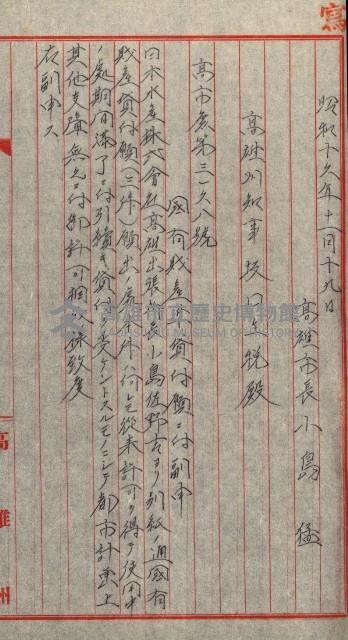 寫
昭和十九年十一月十九日
高雄市長 小島 猛
高雄州知事 坂口主税殿
高市產第三一久八號
國有財產貸付願ニ付副申
日本水產株式會社高雄出張所長小島佐野吉ヨリ別紙ノ通國有
財產貸付願(三件)願出ノ處本件ハ何レモ從來許可ヲ得テ使用中
ノ處期間滿了ニ付引續キ貸付ヲ受ケントスルモノニシテ都市計畫上
其他支障無之ニ付御許可相成樣致度
右副申ス
高雄州
高雄市立歷史博物館
KAOHSIUNG MUSEUM OF HISTORY